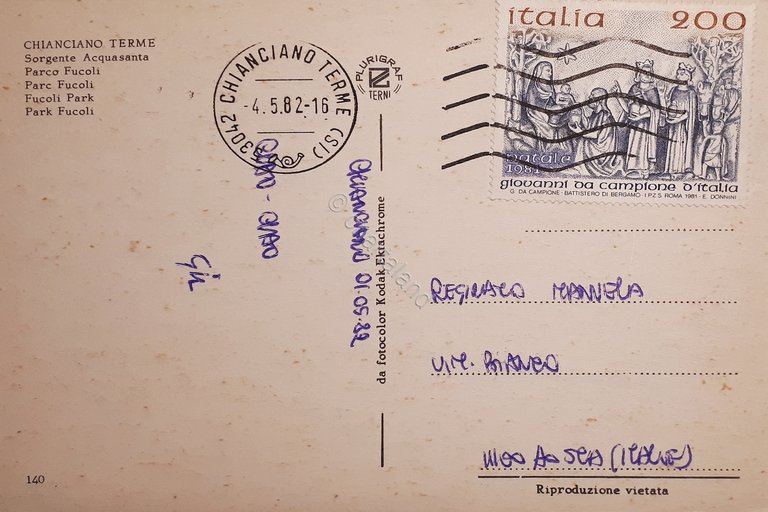 CHIANCIANO TERME
Sorgente Acquasanta
Parco Fucoli
Parc Fucoli
Fucoli Park
Park Fucoli
53042 CHIANCIANO TERME (SI)
-4.5.82-16
PLURIGRAF
TERNI
italia 200
natale
1981
giovanni da campione d'italia
G. DA CAMPIONE - BATTISTERO DI BERGAMO - I.P.Z.S. ROMA 1981 - E. DONNINI
CIAO - CIAO
CHIANCIANO 01.05.82
da fotocolor Kodak Ektachrome
REGINALO
VIA. BIANCO
AOSTA
Riproduzione vietata
140